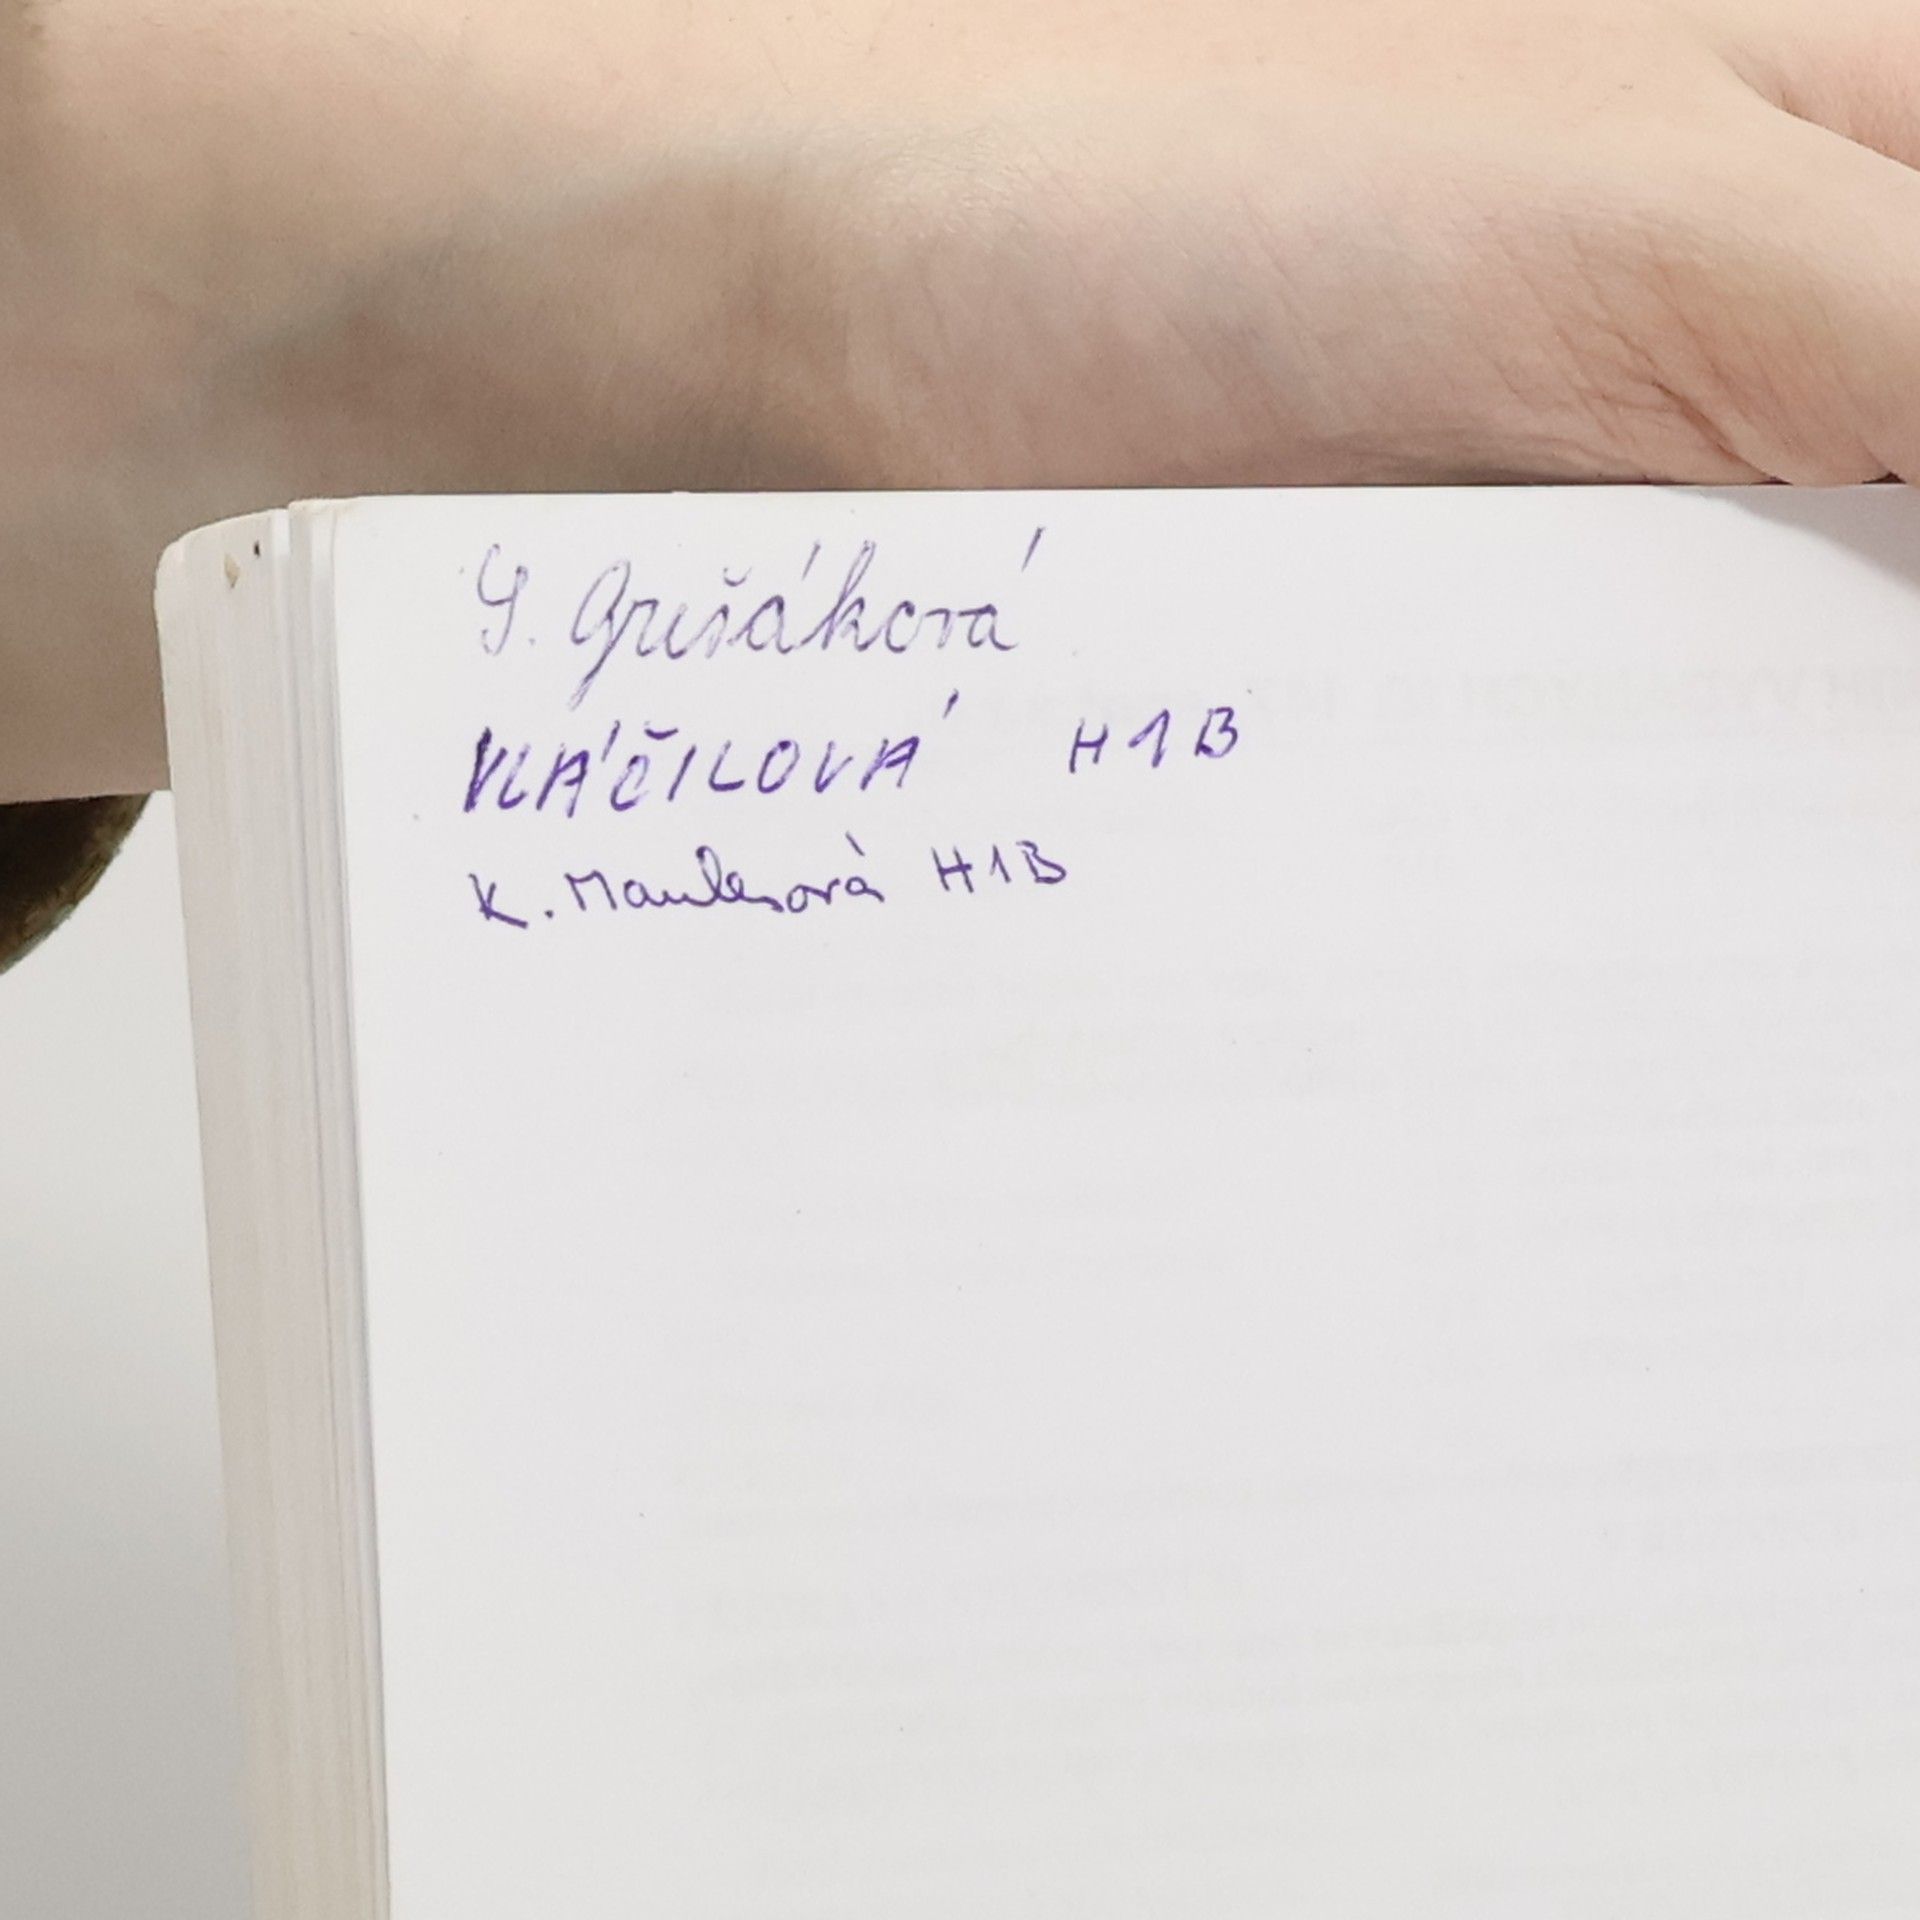 S. Grešáková
VLÁČILOVÁ H1B
K. Maulerová H1B